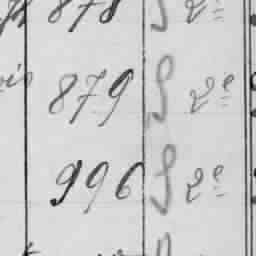 878 S 2e
879 S 2e
996 S 2e